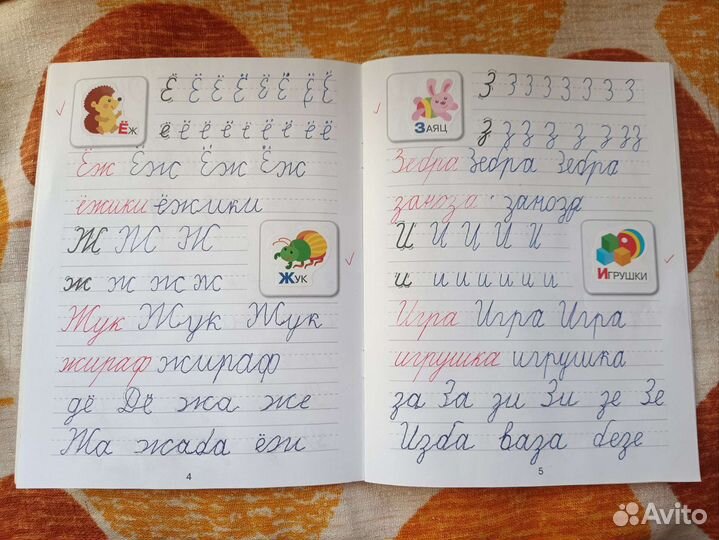 Ёж
Ё Ё Ё Ё Ё Ё Ё Ё
ё ё ё ё ё ё ё ё ё
Ёж Ёж Ёж Ёж
ёжики ёжики
Ж Ж Ж
ж ж ж ж
Жук
Жук Жук Жук
жираф жираф
дё Дё жа же
Жа жаба ёж
4
Заяц
З З З З З З З З
з з з з з з з з
Зебра Зебра Зебра
заноза заноза
И И И И И
и и и и и и
Игрушки
Игра Игра Игра
игрушка игрушка
за За зи Зи зе Зе
Изба ваза безе
5
Avito